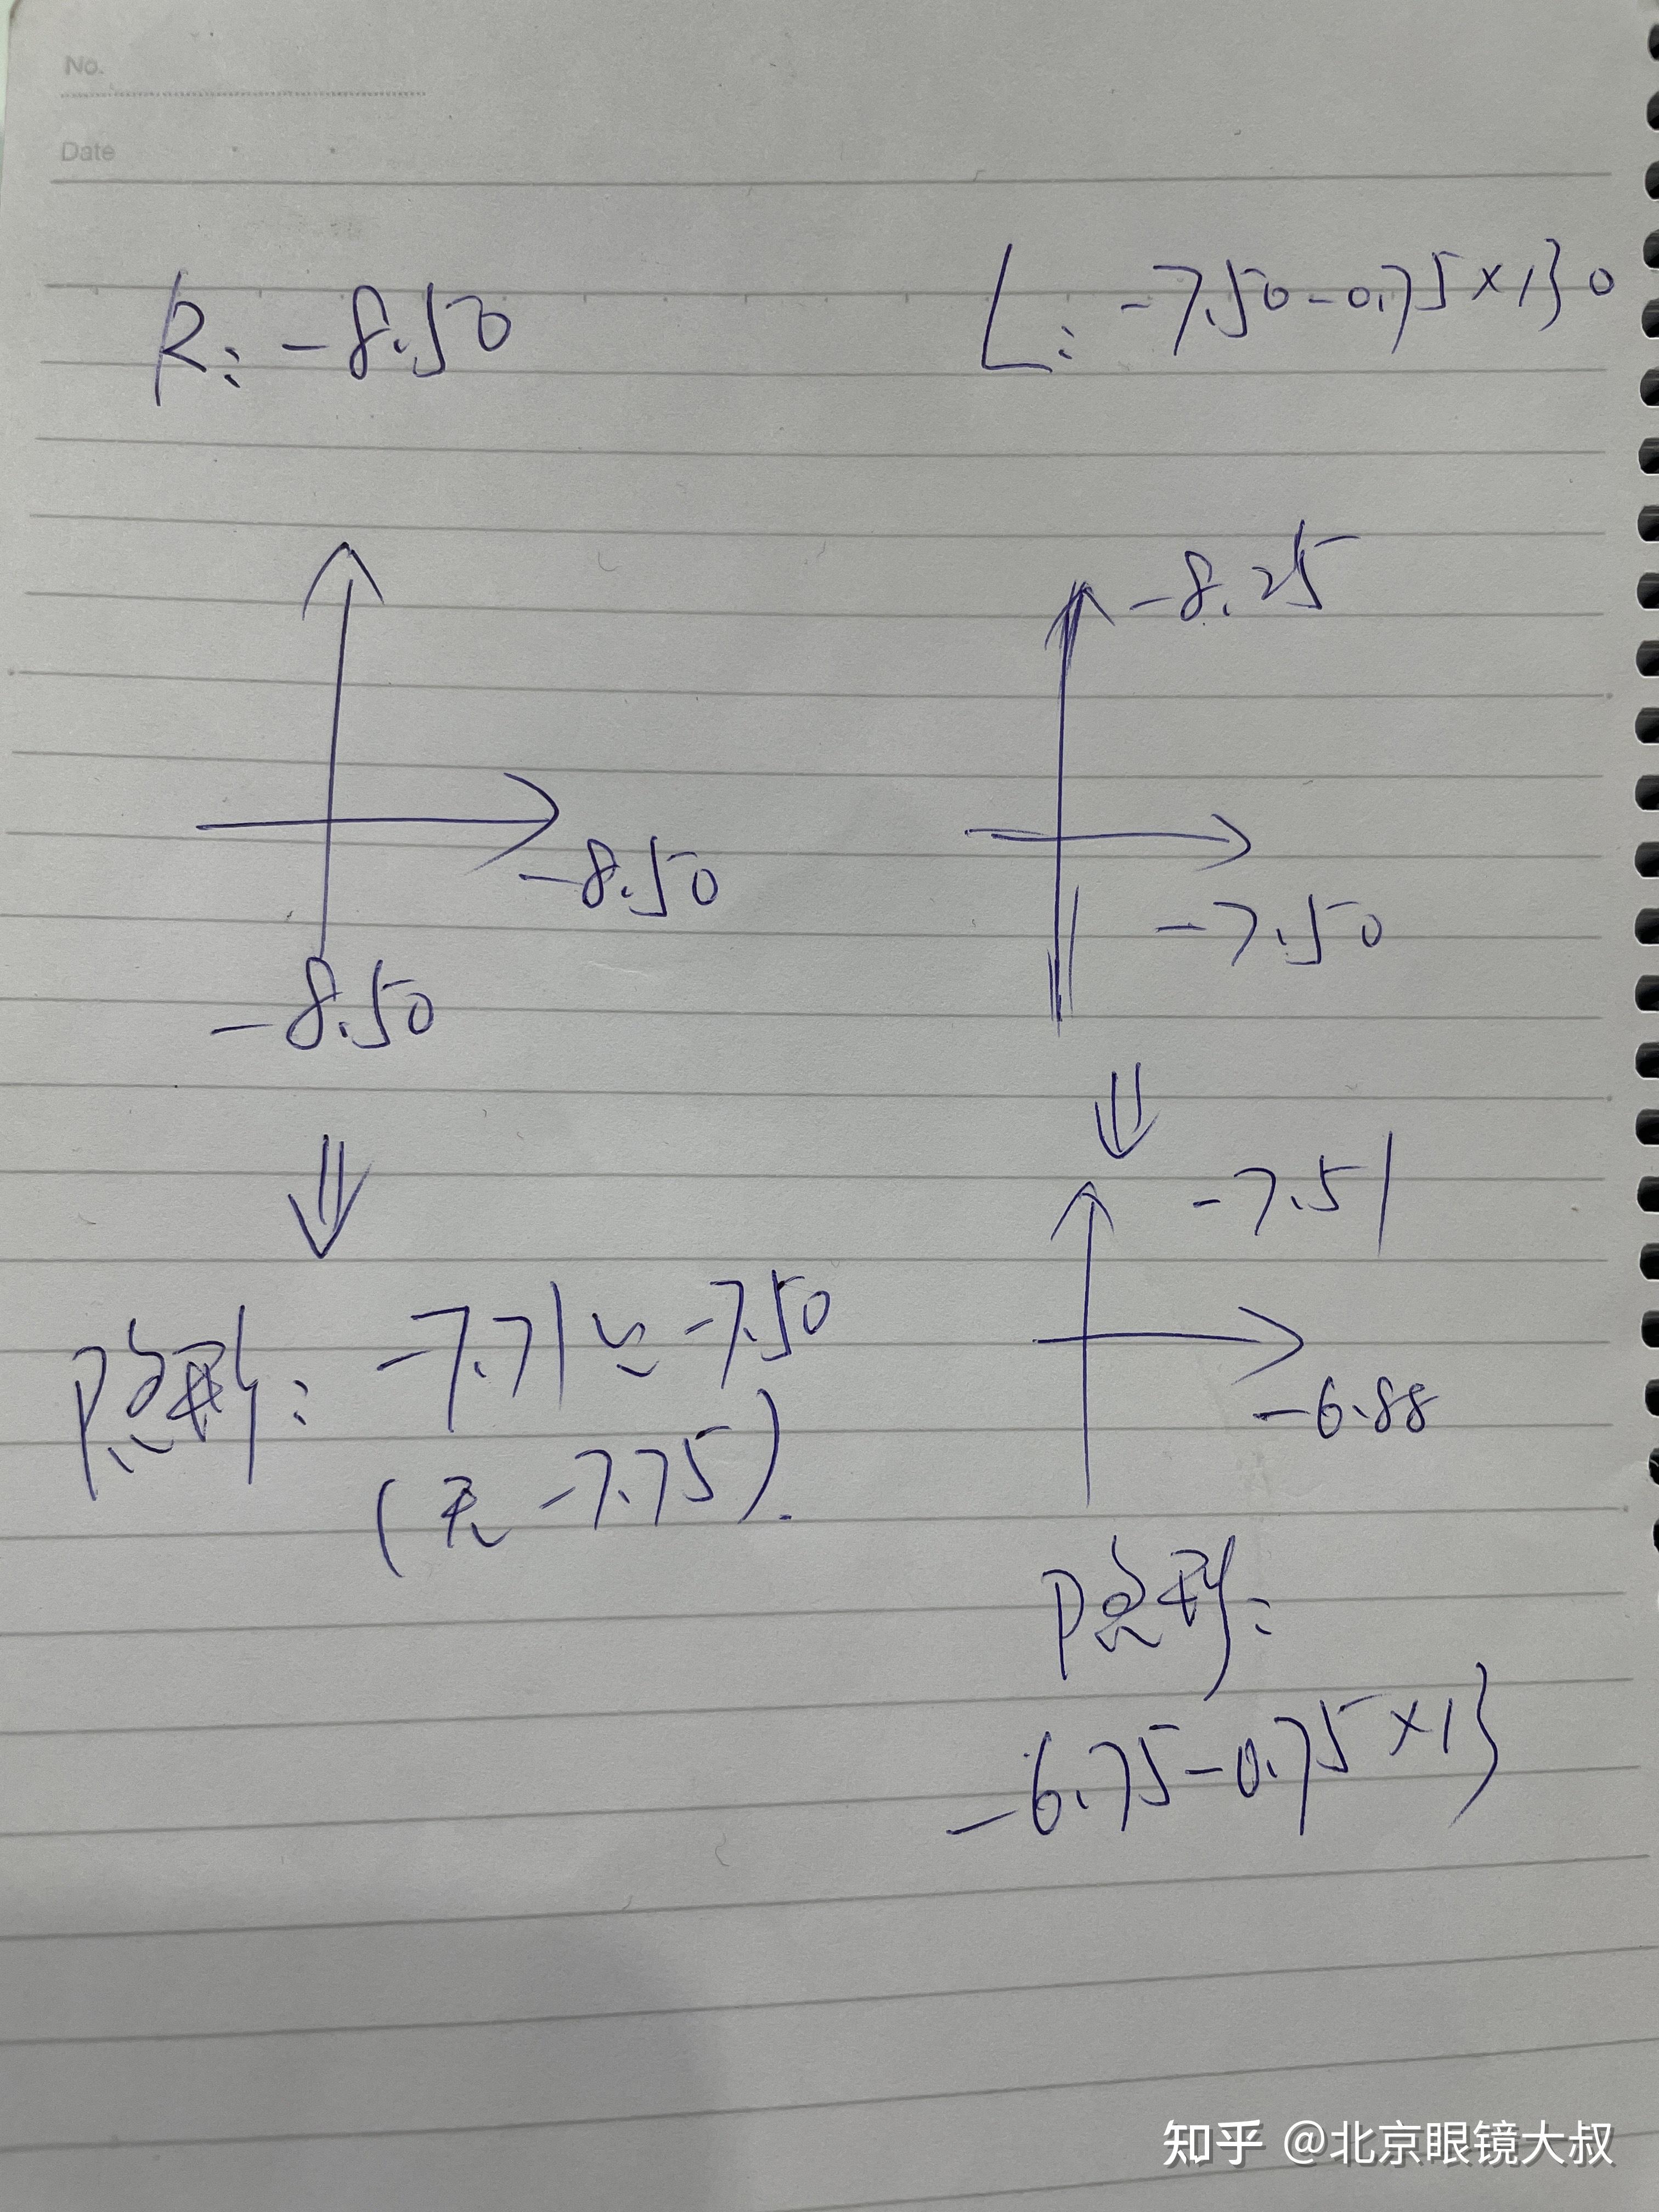 No.
Date
R: -8.50
L: -7.50-0.75×130
-8.50
-8.50
-8.25
-7.50
隐形: -7.71≌-7.50
(无-7.75).
-7.51
-6.88
隐形:
-6.75-0.75×13
知乎 @北京眼镜大叔